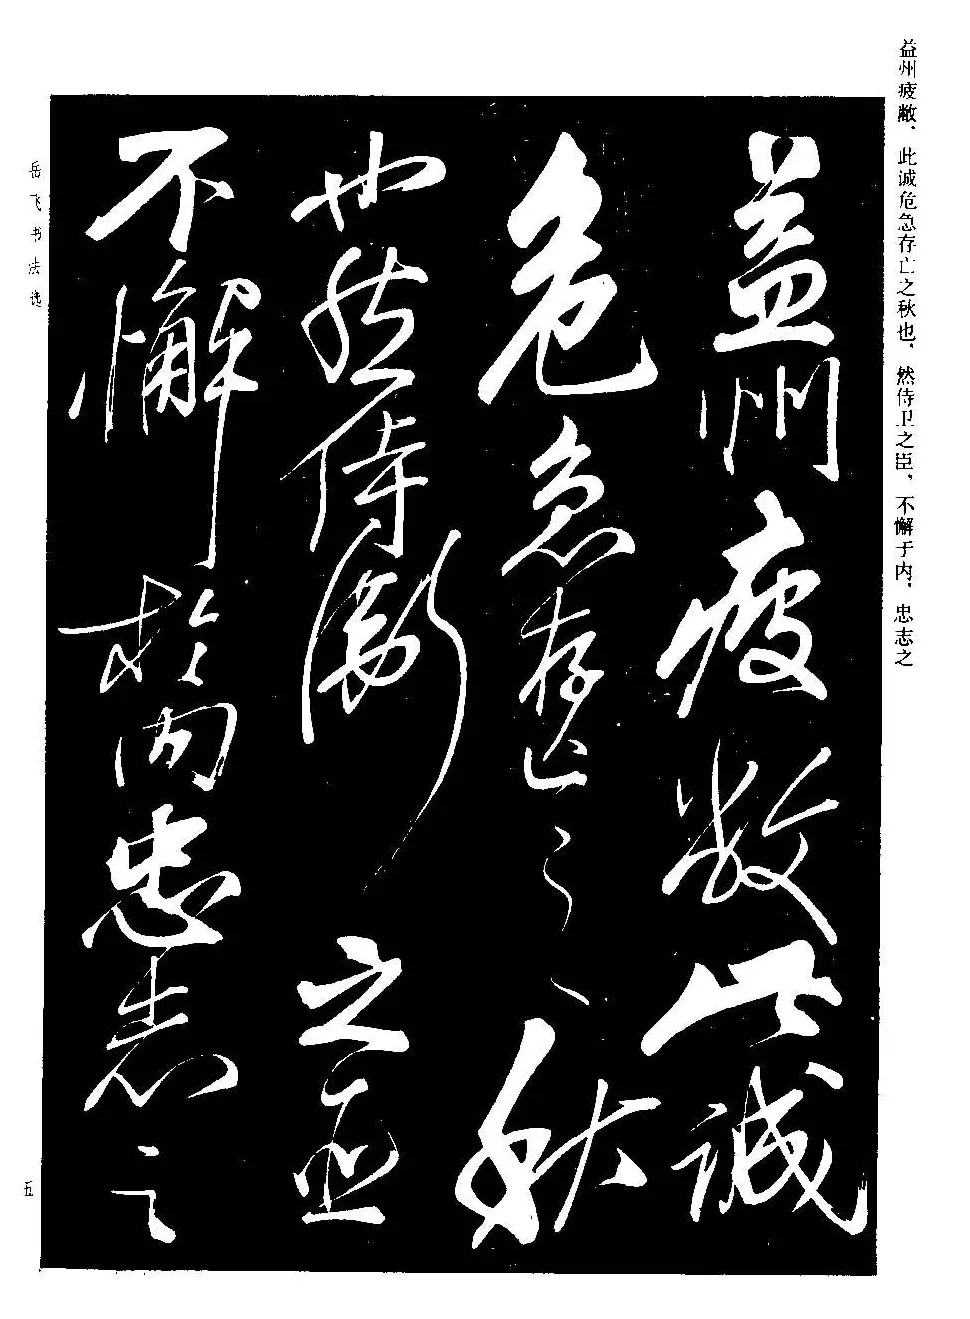 益州疲敝、此诚危急存亡之秋也，然侍卫之臣，不懈于内，忠志之
益州疲敝此誠
危急存亡之秋
也然侍衛之臣
不懈於内忠志之
岳飞书法选
五